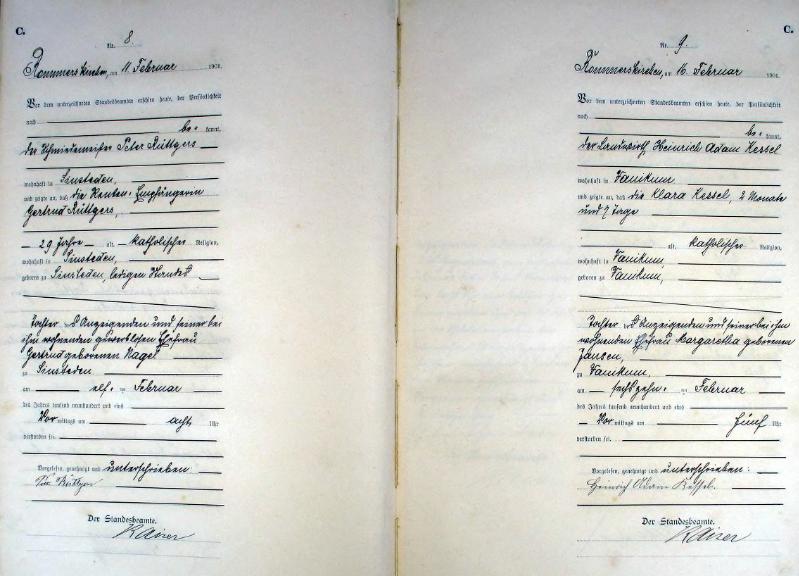 C.
Nr. 8.
Rommerskirchen, am 11 Februar 1901.
Vor dem unterzeichneten Standesbeamten erschien heute, der Persönlichkeit
nach
be= kannt,
der Schmiedemeister Peter Rüttgers
wohnhaft in Sinsteden,
und zeigte an, daß die Renten-Empfängerin
Gertrud Rüttgers,
29 Jahre alt, katholischer Religion,
wohnhaft in Sinsteden,
geboren zu Sinsteden, ledigen Standes
Tochter des Anzeigenden und seiner bei
ihm wohnenden gewerblosen Ehefrau
Gertrud geborenen Nagel
zu Sinsteden
am elf. ten Februar
des Jahres tausend neunhundert und eins
Vor mittags um acht Uhr
verstorben sei.
Vorgelesen, genehmigt und unterschrieben
Rüttgers
Der Standesbeamte.
Kaiser
C.
Nr. 9.
Rommerskirchen, am 16. Februar 1901.
Vor dem unterzeichneten Standesbeamten erschien heute, der Persönlichkeit
nach
be= kannt,
der Landwirth Heinrich Adam Kessel
wohnhaft in Vanikum
und zeigte an, daß die Klara Kessel, 2 Monate
und 7 Tage
alt, katholischer Religion,
wohnhaft in Vanikum,
geboren zu Vanikum,
Tochter des Anzeigenden und seiner bei ihm
wohnenden Ehefrau Margaretha geborenen
Jansen,
zu Vanikum,
am sechszehn. ten Februar
des Jahres tausend neunhundert und eins
Vor mittags um fünf Uhr
verstorben sei.
Vorgelesen, genehmigt und unterschrieben:
Heinrich Adam Kessel.
Der Standesbeamte.
Kaiser